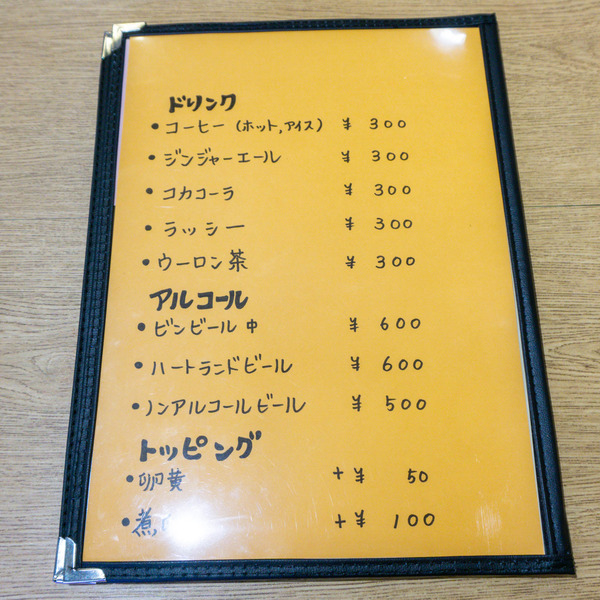 ドリンク
•コーヒー (ホット,アイス) ¥ 300
•ジンジャーエール ¥ 300
•コカコーラ ¥ 300
•ラッシー ¥ 300
•ウーロン茶 ¥ 300
アルコール
•ビンビール 中 ¥ 600
•ハートランドビール ¥ 600
•ノンアルコールビール ¥ 500
トッピング
•卵黄 +¥ 50
•煮 +¥ 100